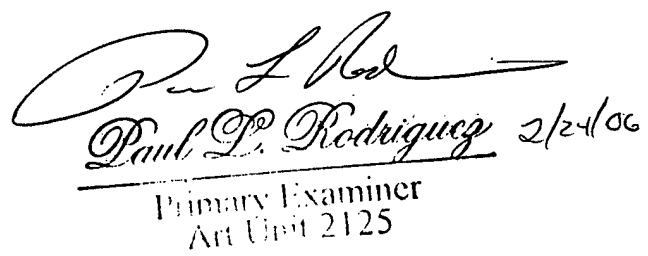 Paul L. Rodriguez 2/24/06
Primary Examiner
Art Unit 2125